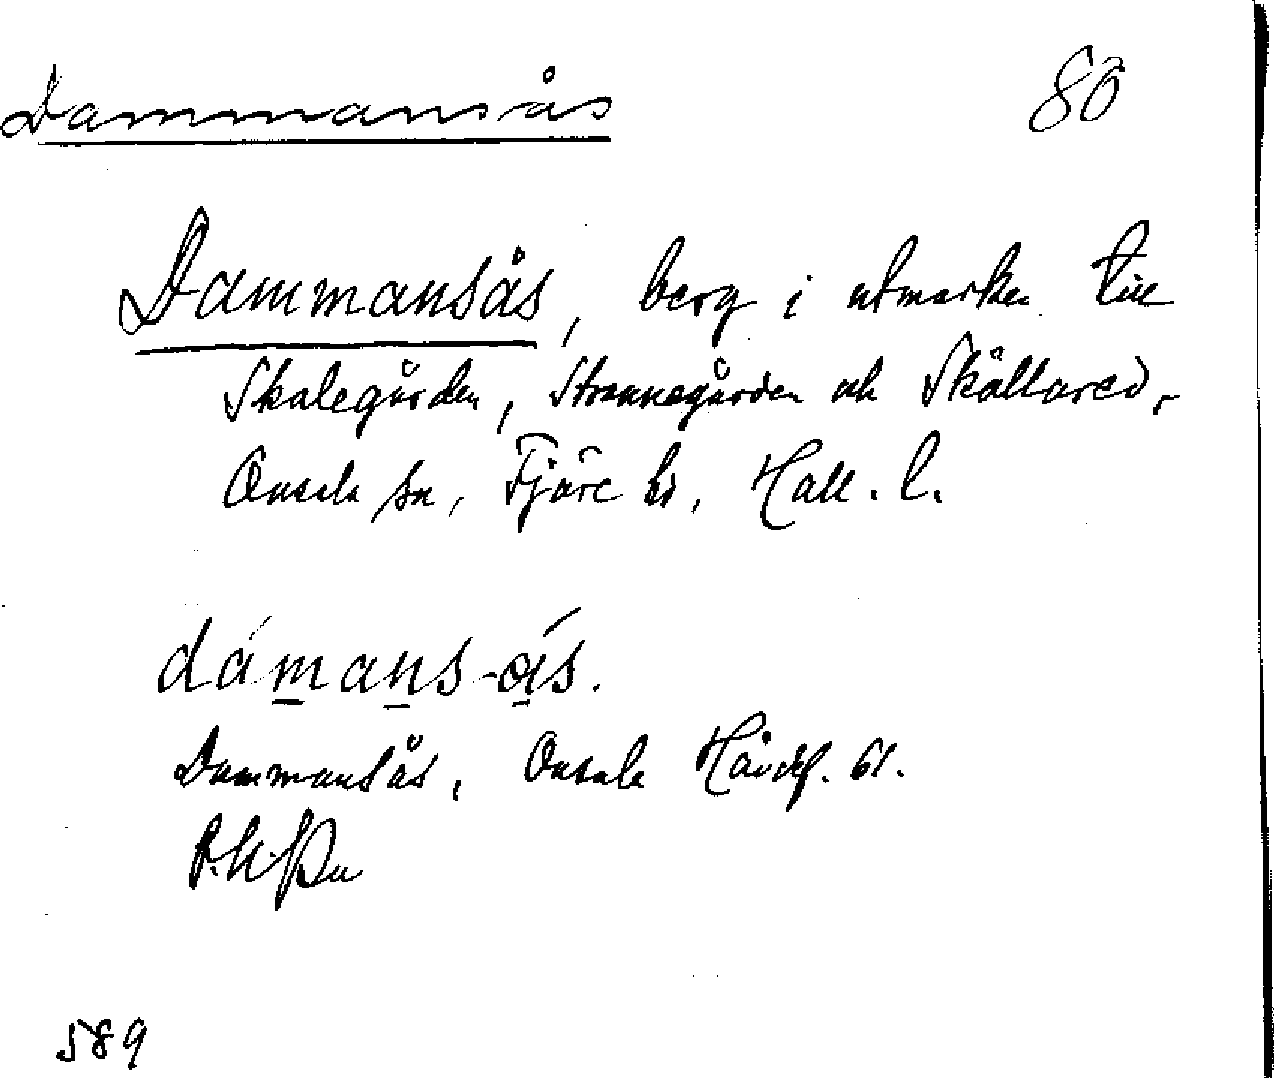 Dammansås 80
Dammansås, berg i utmarken till
Skalegården, Strannegården och Skållared,
Onsala sn, Fjäre hd, Hall. l.
dámans-ás.
Dammansås, Onsala 61.
589